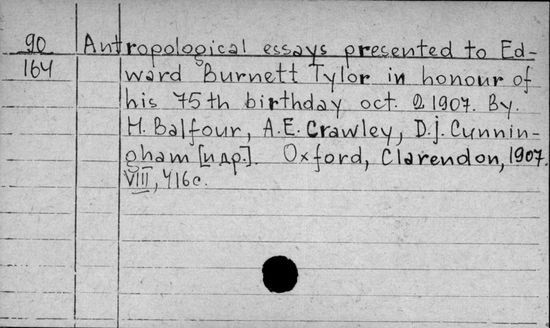 90 Antropological essays presented to Ed-
164 ward Burnett Tylor in honour of
his 75th birthday oct. 2 1907. By.
H. Balfour, A.E. Crawley, D.j. Cunnin-
gham [и др.]. Oxford, Clarendon, 1907.
VIII, 416c.